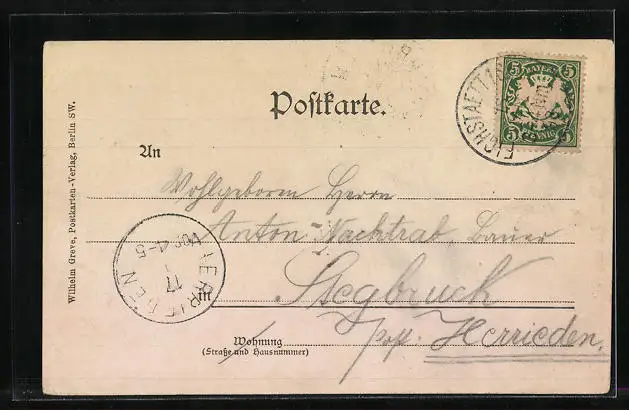 Postkarte.
5 BAYERN 5
5 PFENNIG 5
EICHSTAETT
An
Wohlgeboren Herrn
Anton Nachtrab, Bauer
in Stegbruck
Wohnung
(Straße und Hausnummer)
Post. Herrieden.
HERRIEDEN
17
Vor 4-5
Wilhelm Greve, Postkarten-Verlag, Berlin SW.